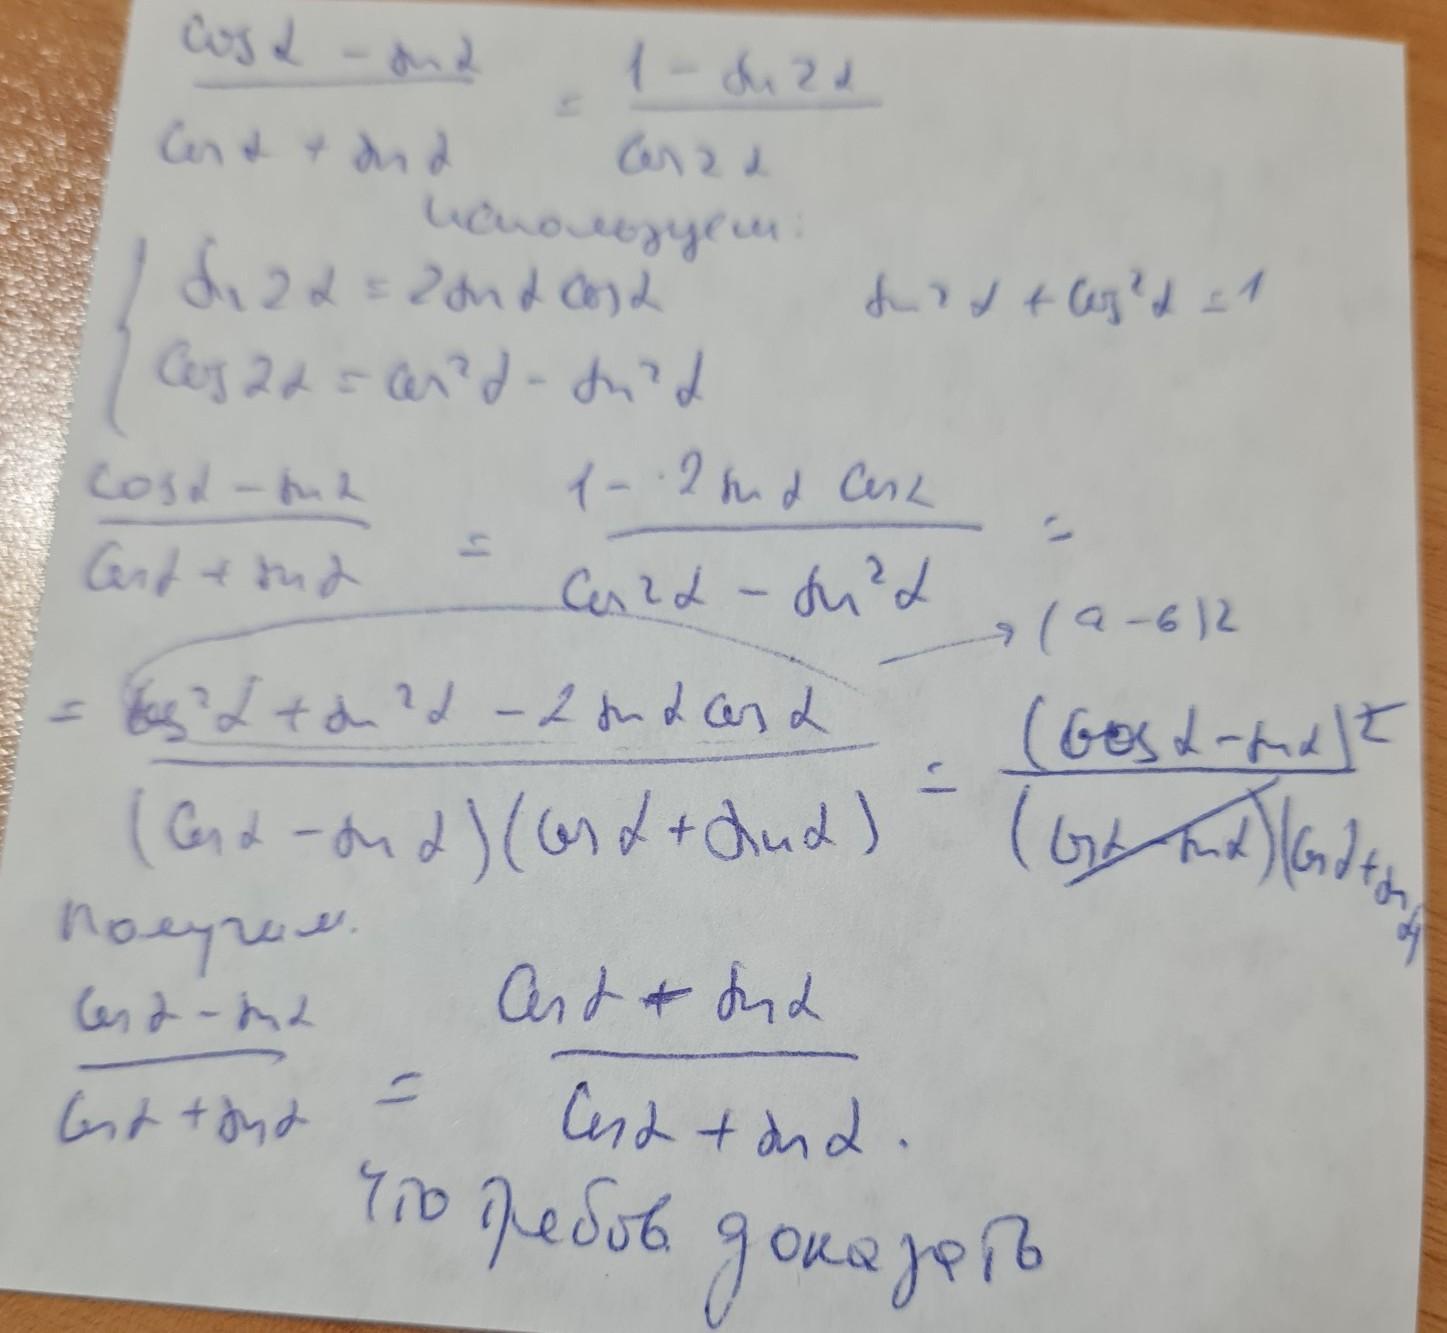 cosα - sinα / cosα + sinα = 1 - sin2α / cos2α
используем:
sin2α = 2sinα cosα
sin²α + cos²α = 1
cos2α = cos²α - sin²α
cosα - sinα / cosα + sinα = 1 - 2sinα cosα / cos²α - sin²α =
→ (a - b)2
= cos²α + sin²α - 2sinα cosα / (cosα - sinα)(cosα + sinα) = (cosα - sinα)² / (cosα - sinα)(cosα + sinα)
получим.
cosα - sinα / cosα + sinα = cosα + sinα / cosα + sinα.
Что требов доказать